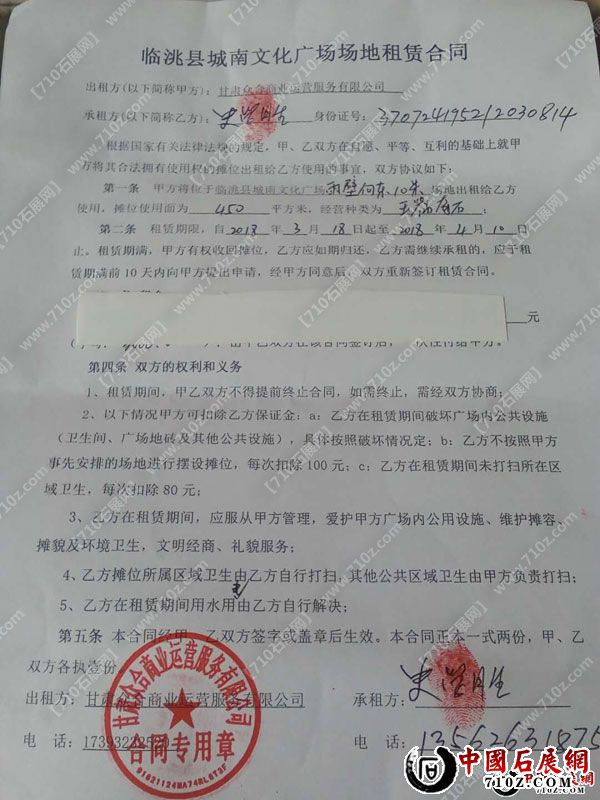 临洮县城南文化广场场地租赁合同
出租方(以下简称甲方): 甘肃众合商业运营服务有限公司
承租方(以下简称乙方): 身份证号: 370724195212030814
根据国家有关法律法规的规定，甲、乙双方在自愿、平等、互利的基础上就甲
方将其合法拥有使用权的摊位出租给乙方使用的事宜，双方协议如下:
第一条 甲方将位于临洮县城南文化广场 向东10米 场地出租给乙方
使用，摊位使用面为 450 平方米，经营种类为 ;
第二条 租赁期限，自2018年3月18日起至2018年4月10日
止。租赁期满，甲方有权收回摊位，乙方应如期归还，乙方需继续承租的，应于租
赁期满前10天内向甲方提出申请，经甲方同意后，双方重新签订租赁合同。
元
第四条 双方的权利和义务
1、租赁期间，甲乙双方不得提前终止合同，如需终止，需经双方协商;
2、以下情况甲方可扣除乙方保证金: a: 乙方在租赁期间破坏广场内公共设施
(卫生间、广场地砖及其他公共设施)，具体按照破坏情况定; b: 乙方不按照甲方
事先安排的场地进行摆设摊位，每次扣除100元; c: 乙方在租赁期间未打扫所在区
域卫生，每次扣除80元;
3、乙方在租赁期间，应服从甲方管理，爱护甲方广场内公用设施、维护摊容、
摊貌及环境卫生，文明经商、礼貌服务;
4、乙方摊位所属区域卫生由乙方自行打扫，其他公共区域卫生由甲方负责打扫;
5、乙方在租赁期间用水用电由乙方自行解决;
第五条 本合同经甲、乙双方签字或盖章后生效。本合同正本一式两份，甲、乙
双方各执壹份。
出租方: 甘肃众合商业运营服务有限公司
承租方:
电 话:
电 话: 13562631875
甘肃众合商业运营服务有限公司
合同专用章
中國石展網
710z.com
【710石展网】
www.710z.com